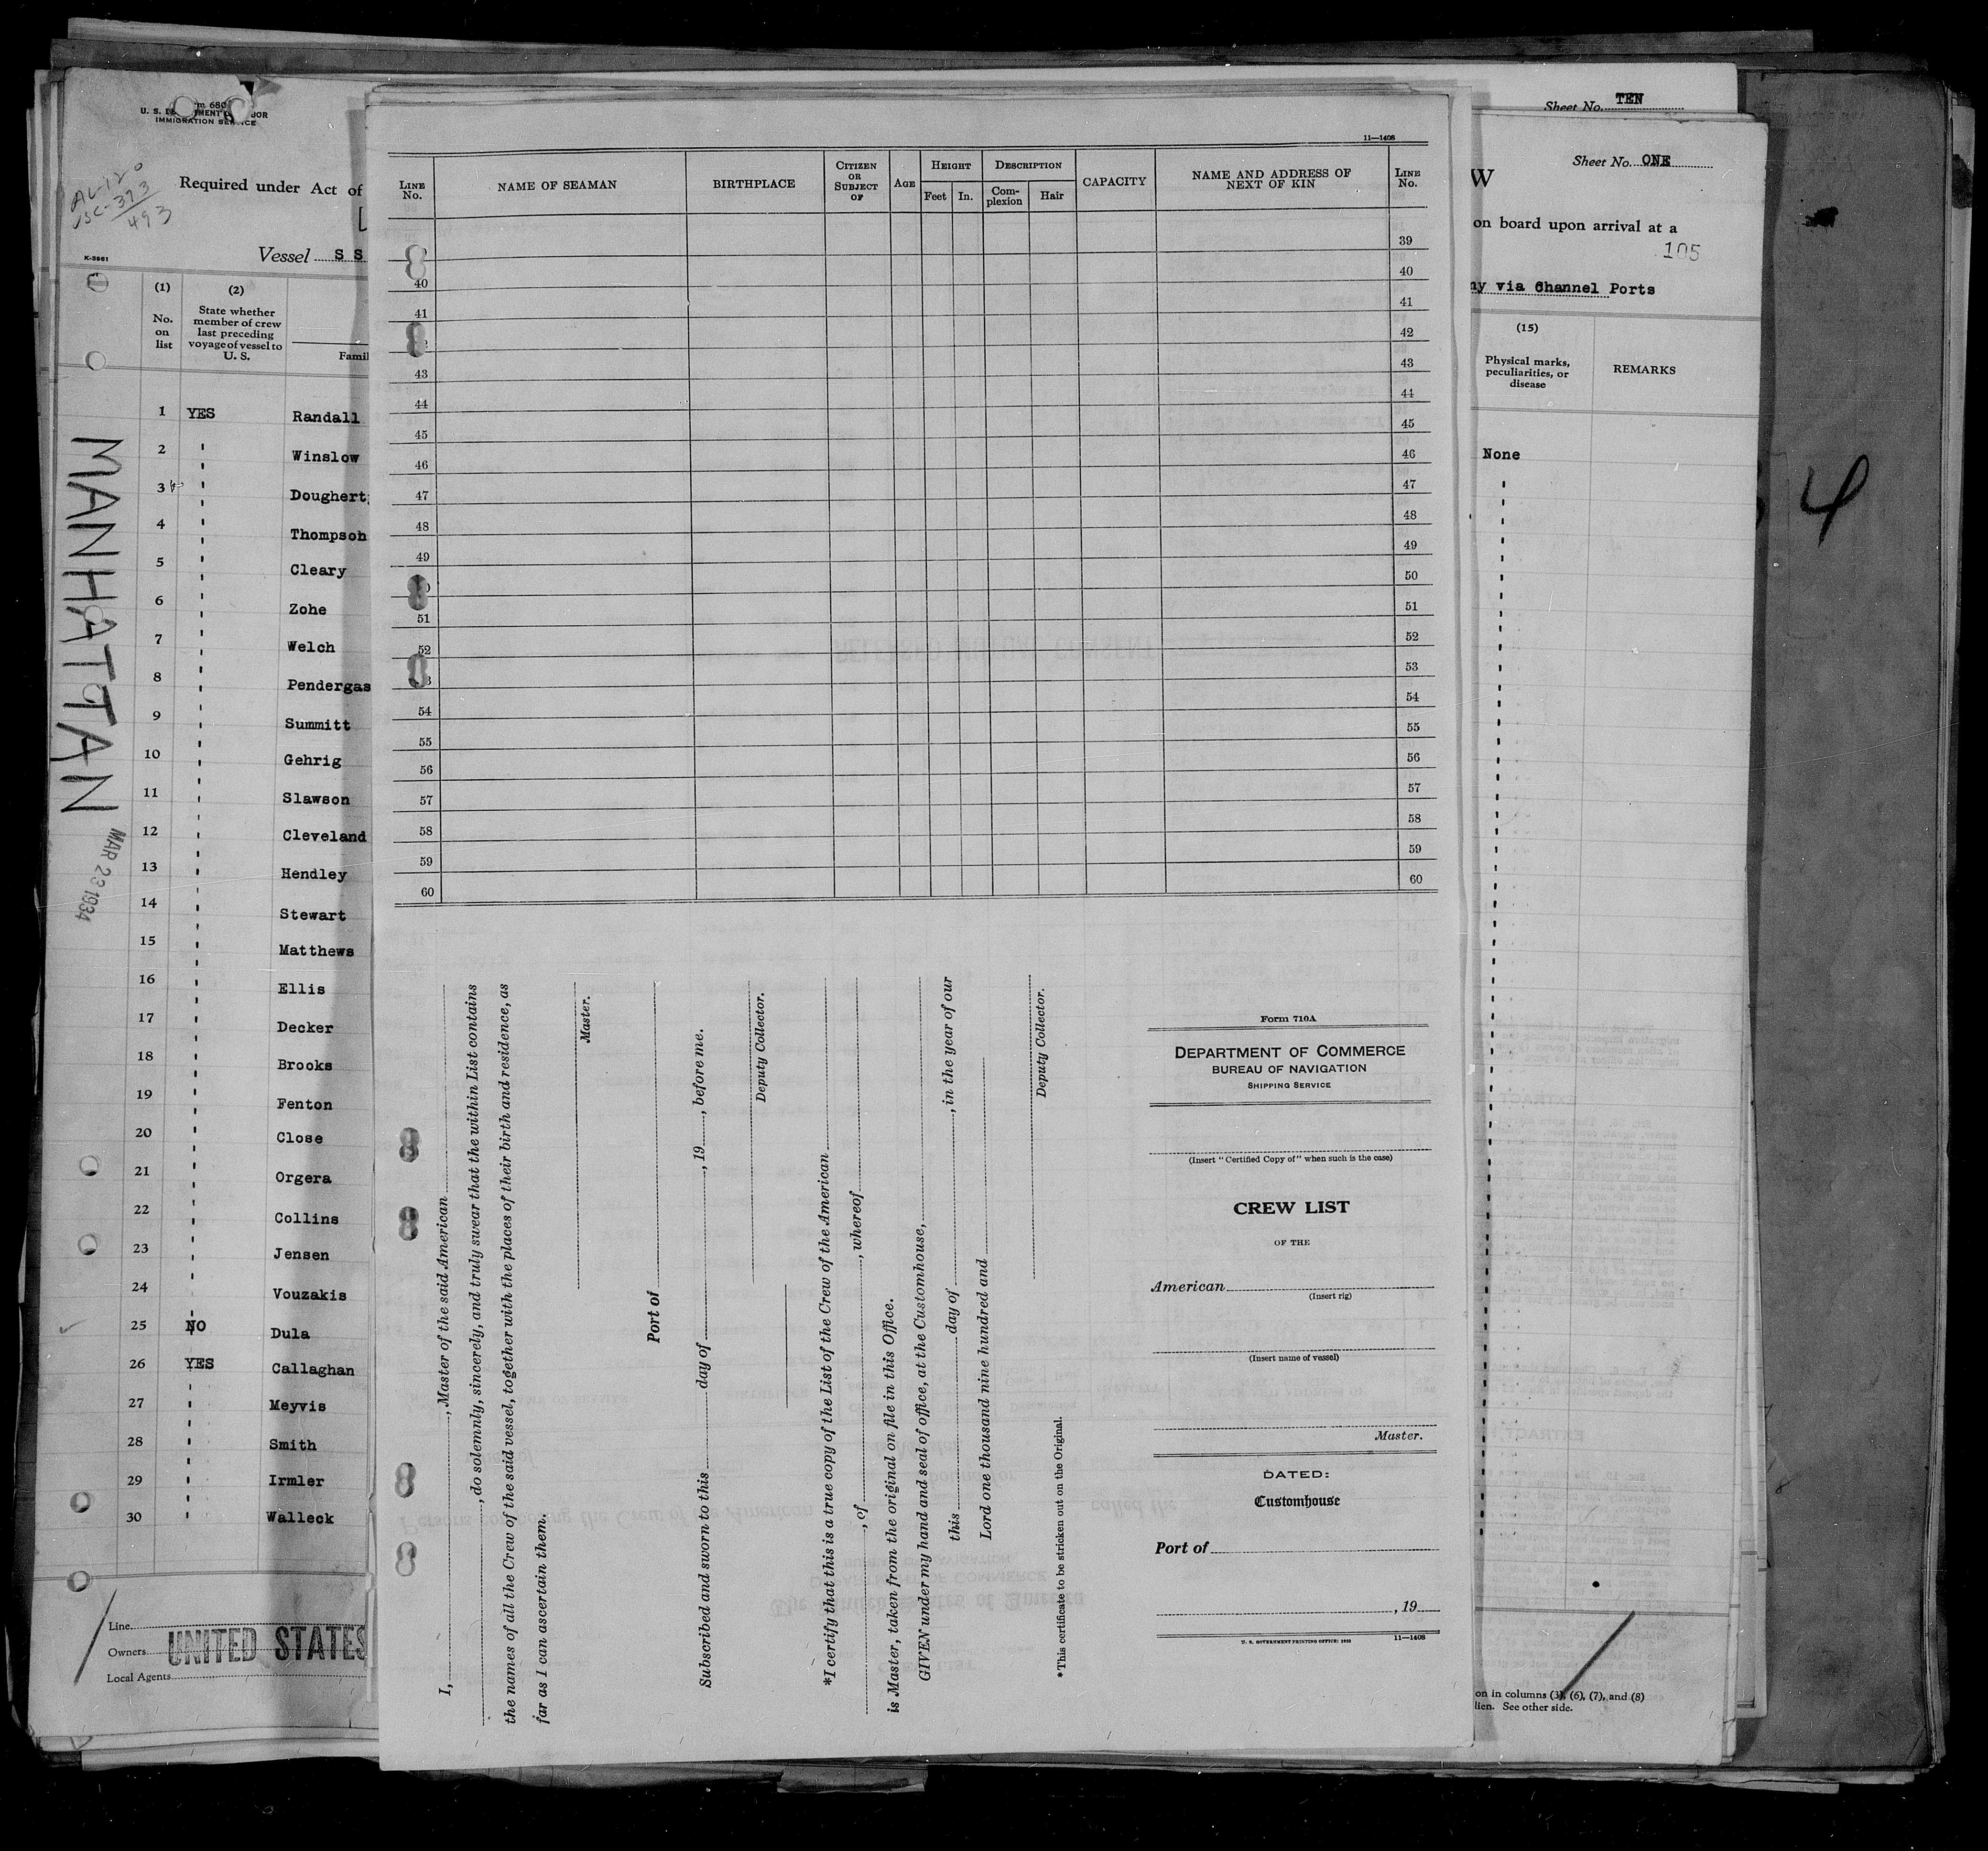 U. S. DEPARTMENT OF LABOR
IMMIGRATION SERVICE
AL-120
USC-373
493
Required under Act of
Vessel S S
K-3661
(1)
No.
on
list
(2)
State whether
member of crew
last preceding
voyage of vessel to
U. S.
Famil
1 YES Randall
2 " Winslow
3 " Dougherty
4 " Thompson
5 " Cleary
6 " Zohe
7 " Welch
8 " Pendergas
9 " Summitt
10 " Gehrig
11 " Slawson
12 " Cleveland
13 " Hendley
14 " Stewart
15 " Matthews
16 " Ellis
17 " Decker
18 " Brooks
19 " Fenton
20 " Close
21 " Orgera
22 " Collins
23 " Jensen
24 " Vouzakis
25 NO Dula
26 YES Callaghan
27 " Meyvis
28 " Smith
29 " Irmler
30 " Walleck
MANHATTAN
MAR 23 1934
Line
Owners UNITED STATES
Local Agents
11—1408
LINE No.
NAME OF SEAMAN
BIRTHPLACE
CITIZEN OR SUBJECT OF
AGE
HEIGHT
Feet In.
DESCRIPTION
Complexion Hair
CAPACITY
NAME AND ADDRESS OF NEXT OF KIN
LINE No.
39
40 40
41 41
42
43 43
44 44
45 45
46 46
47 47
48 48
49 49
50
51 51
52 52
53
54 54
55 55
56 56
57 57
58 58
59 59
60 60
I, , Master of the said American
, do solemnly, sincerely, and truly swear that the within List contains
the names of all the Crew of the said vessel, together with the places of their birth and residence, as
far as I can ascertain them.
Master.
Port of
Subscribed and sworn to this day of , 19 , before me.
Deputy Collector.
*I certify that this is a true copy of the List of the Crew of the American
, of , whereof
is Master, taken from the original on file in this Office.
GIVEN under my hand and seal of office, at the Customhouse,
this day of , in the year of our
Lord one thousand nine hundred and
Deputy Collector.
*This certificate to be stricken out on the Original.
Form 710A
DEPARTMENT OF COMMERCE
BUREAU OF NAVIGATION
SHIPPING SERVICE
(Insert "Certified Copy of" when such is the case)
CREW LIST
OF THE
American
(Insert rig)
(Insert name of vessel)
Master.
DATED:
Customhouse
Port of
, 19
U. S. GOVERNMENT PRINTING OFFICE: 11—1408
Sheet No. TEN
Sheet No. ONE
W
on board upon arrival at a
105
ny via Channel Ports
(15)
Physical marks,
peculiarities, or
disease
REMARKS
None
on in columns (3), (6), (7), and (8)
lien. See other side.
4